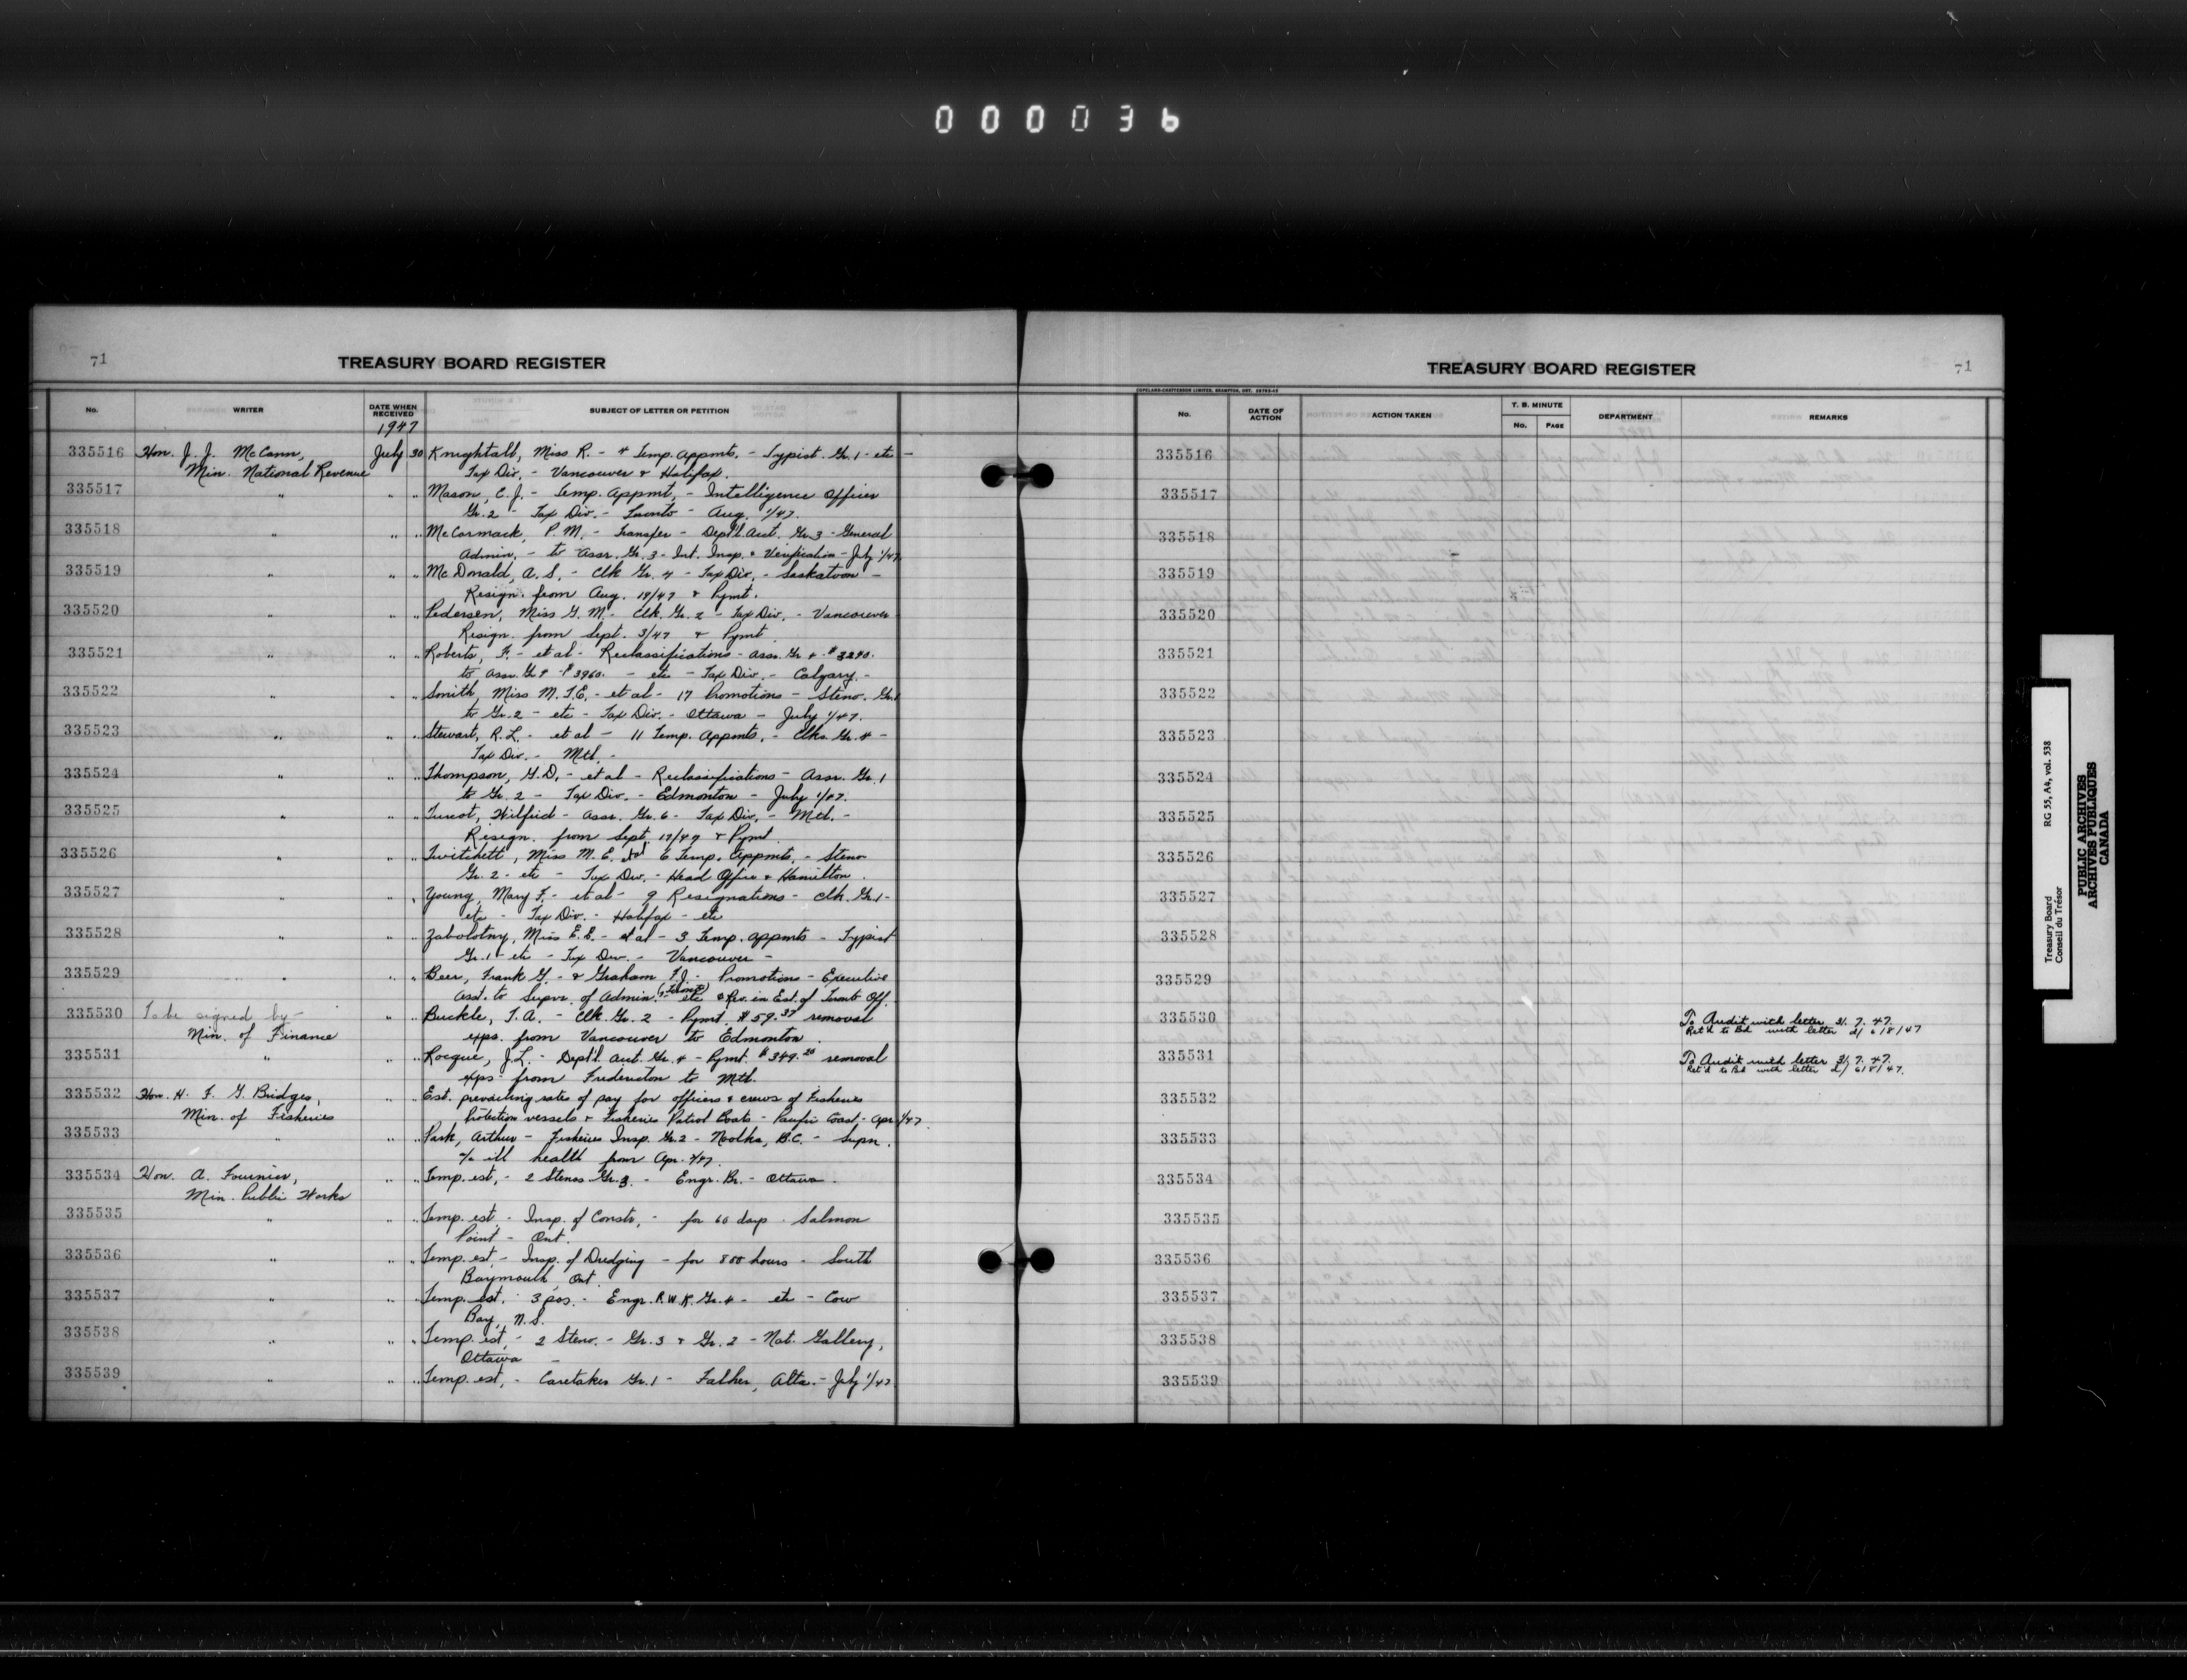 000036
71
TREASURY BOARD REGISTER
No. WRITER DATE WHEN RECEIVED SUBJECT OF LETTER OR PETITION
1947
335516 Hon. J. J. McCann, July 30 Knightall, Miss R. - 4 Temp. Appmts. - Typist. Gr. 1 - etc -
Min. National Revenue Tax Div. - Vancouver & Halifax.
335517 " " " Mason, C. J. - Temp. Appmt, - Intelligence Officer
Gr. 2 - Tax Div. - Toronto - Aug. 1/47.
335518 " " " McCormack, P. M. - Transfer - Dept'l Acct. Gr. 3 - General
Admin. - to Assr. Gr. 3 - Int. Insp. & Verification - July 1/47
335519 " " " McDonald, A. S. - Clk Gr. 4 - Tax Div. - Saskatoon -
Resign. from Aug. 19/47 & Pymt.
335520 " " " Pedersen, Miss G. M. - Clk. Gr. 2 - Tax Div. - Vancouver
Resign. from Sept. 3/47 & Pymt
335521 " " " Roberts, F. - et al - Reclassifications - Assr. Gr 4 - $3290.
to Assr. Gr $3960. - etc - Tax Div. - Calgary. -
335522 " " " Smith, Miss M. T. E. - et al - 17 Promotions - Steno. Gr. 1
to Gr. 2 - etc - Tax Div. - Ottawa - July 1/47.
335523 " " " Stewart, R. L. - et al - 11 Temp. Appmts. - Clks. Gr. 4 -
Tax Div. - Mtl. -
335524 " " " Thompson, G. D. - et al - Reclassifications - Assr. Gr. 1
to Gr. 2 - Tax Div. - Edmonton - July 1/47.
335525 " " " Turcot, Wilfrid - Assr. Gr. 6 - Tax Div. - Mtl. -
Resign. from Sept. 19/47 & Pymt.
335526 " " " Twitchett, Miss M. E. et al 6 Temp. Appmts. - Steno
Gr. 2 - etc - Tax Div. - Head Office & Hamilton.
335527 " " " Young, Mary F. - et al - 9 Resignations - Clk. Gr. 1 -
etc - Tax Div. - Halifax - etc
335528 " " " Zabolotny, Miss E. E. - et al - 3 Temp. appmts - Typist
Gr. 1 - etc - Tax Div. - Vancouver -
335529 " " " Beer, Frank G. - & Graham F. J. - Promotion - Executive
Asst. to Supvr. of Admin. (Toronto) - etc & Rev. in Est. of Toronto Off.
335530 To be signed by - " " Buckle, T. A. - Clk. Gr. 2 - Pymt. $59.37 removal
Min. of Finance exps. from Vancouver to Edmonton.
335531 " " " Rocque, J. L. - Dept'l. Aut. Gr. 4 - Pymt. $349.20 removal
exps - from Fredericton to Mtl.
335532 Hon. H. F. G. Bridges, " " Est. prevailing rates of pay for officers & crews of Fisheries
Min. of Fisheries Protection vessels & Fisheries Patrol Boats - Pacific Coast - Apr. 1/47.
335533 " " " Park, Arthur - Fisheries Insp. Gr. 2 - Nootka, B.C. - Supn.
a/c ill health from Apr.
335534 Hon. A. Fournier, " " Temp. est, - 2 Stenos Gr. 3. - Engr. Br. - Ottawa.
Min. Public Works
335535 " " " Temp. est. - Insp. of Constr, - for 60 days - Salmon
Point - Ont.
335536 " " " Temp. est, - Insp. of Dredging - for 800 hours - South
Baymouth, Ont.
335537 " " " Temp. est. - 3 pos. - Engr. P.W.K. Gr. 4 - etc - Cow
Bay, N.S.
335538 " " " Temp. est, - 2 Steno. - Gr. 3 & Gr. 2 - Nat. Gallery,
Ottawa -
335539 " " " Temp. est, - Caretaker Gr. 1 - Falher, Alta. - July 1/47
TREASURY BOARD REGISTER
71
COPELAND-CHATTERSON LIMITED, BRAMPTON, ONT.
No. DATE OF ACTION ACTION TAKEN T. B. MINUTE No. PAGE DEPARTMENT REMARKS
335516
335517
335518
335519
335520
335521
335522
335523
335524
335525
335526
335527
335528
335529
335530 To Audit with letter 31. 7. 47.
Ret'd to Bd with letter d/ 6/8/47
335531 To Audit with letter 31. 7. 47.
Ret'd to Bd with letter d/ 6/8/47.
335532
335533
335534
335535
335536
335537
335538
335539
Treasury Board RG 55, A4, vol. 538
Conseil du Trésor
PUBLIC ARCHIVES
ARCHIVES PUBLIQUES
CANADA